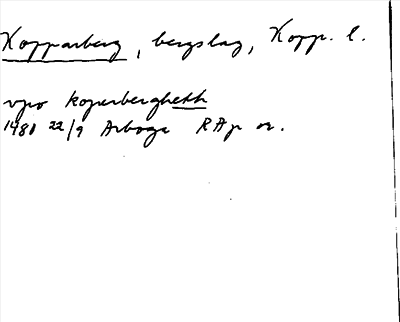 Kopparberg, bergslag, Kopp. l.
vpo koperbergheth
1480 22/9 Arboga RAp or.